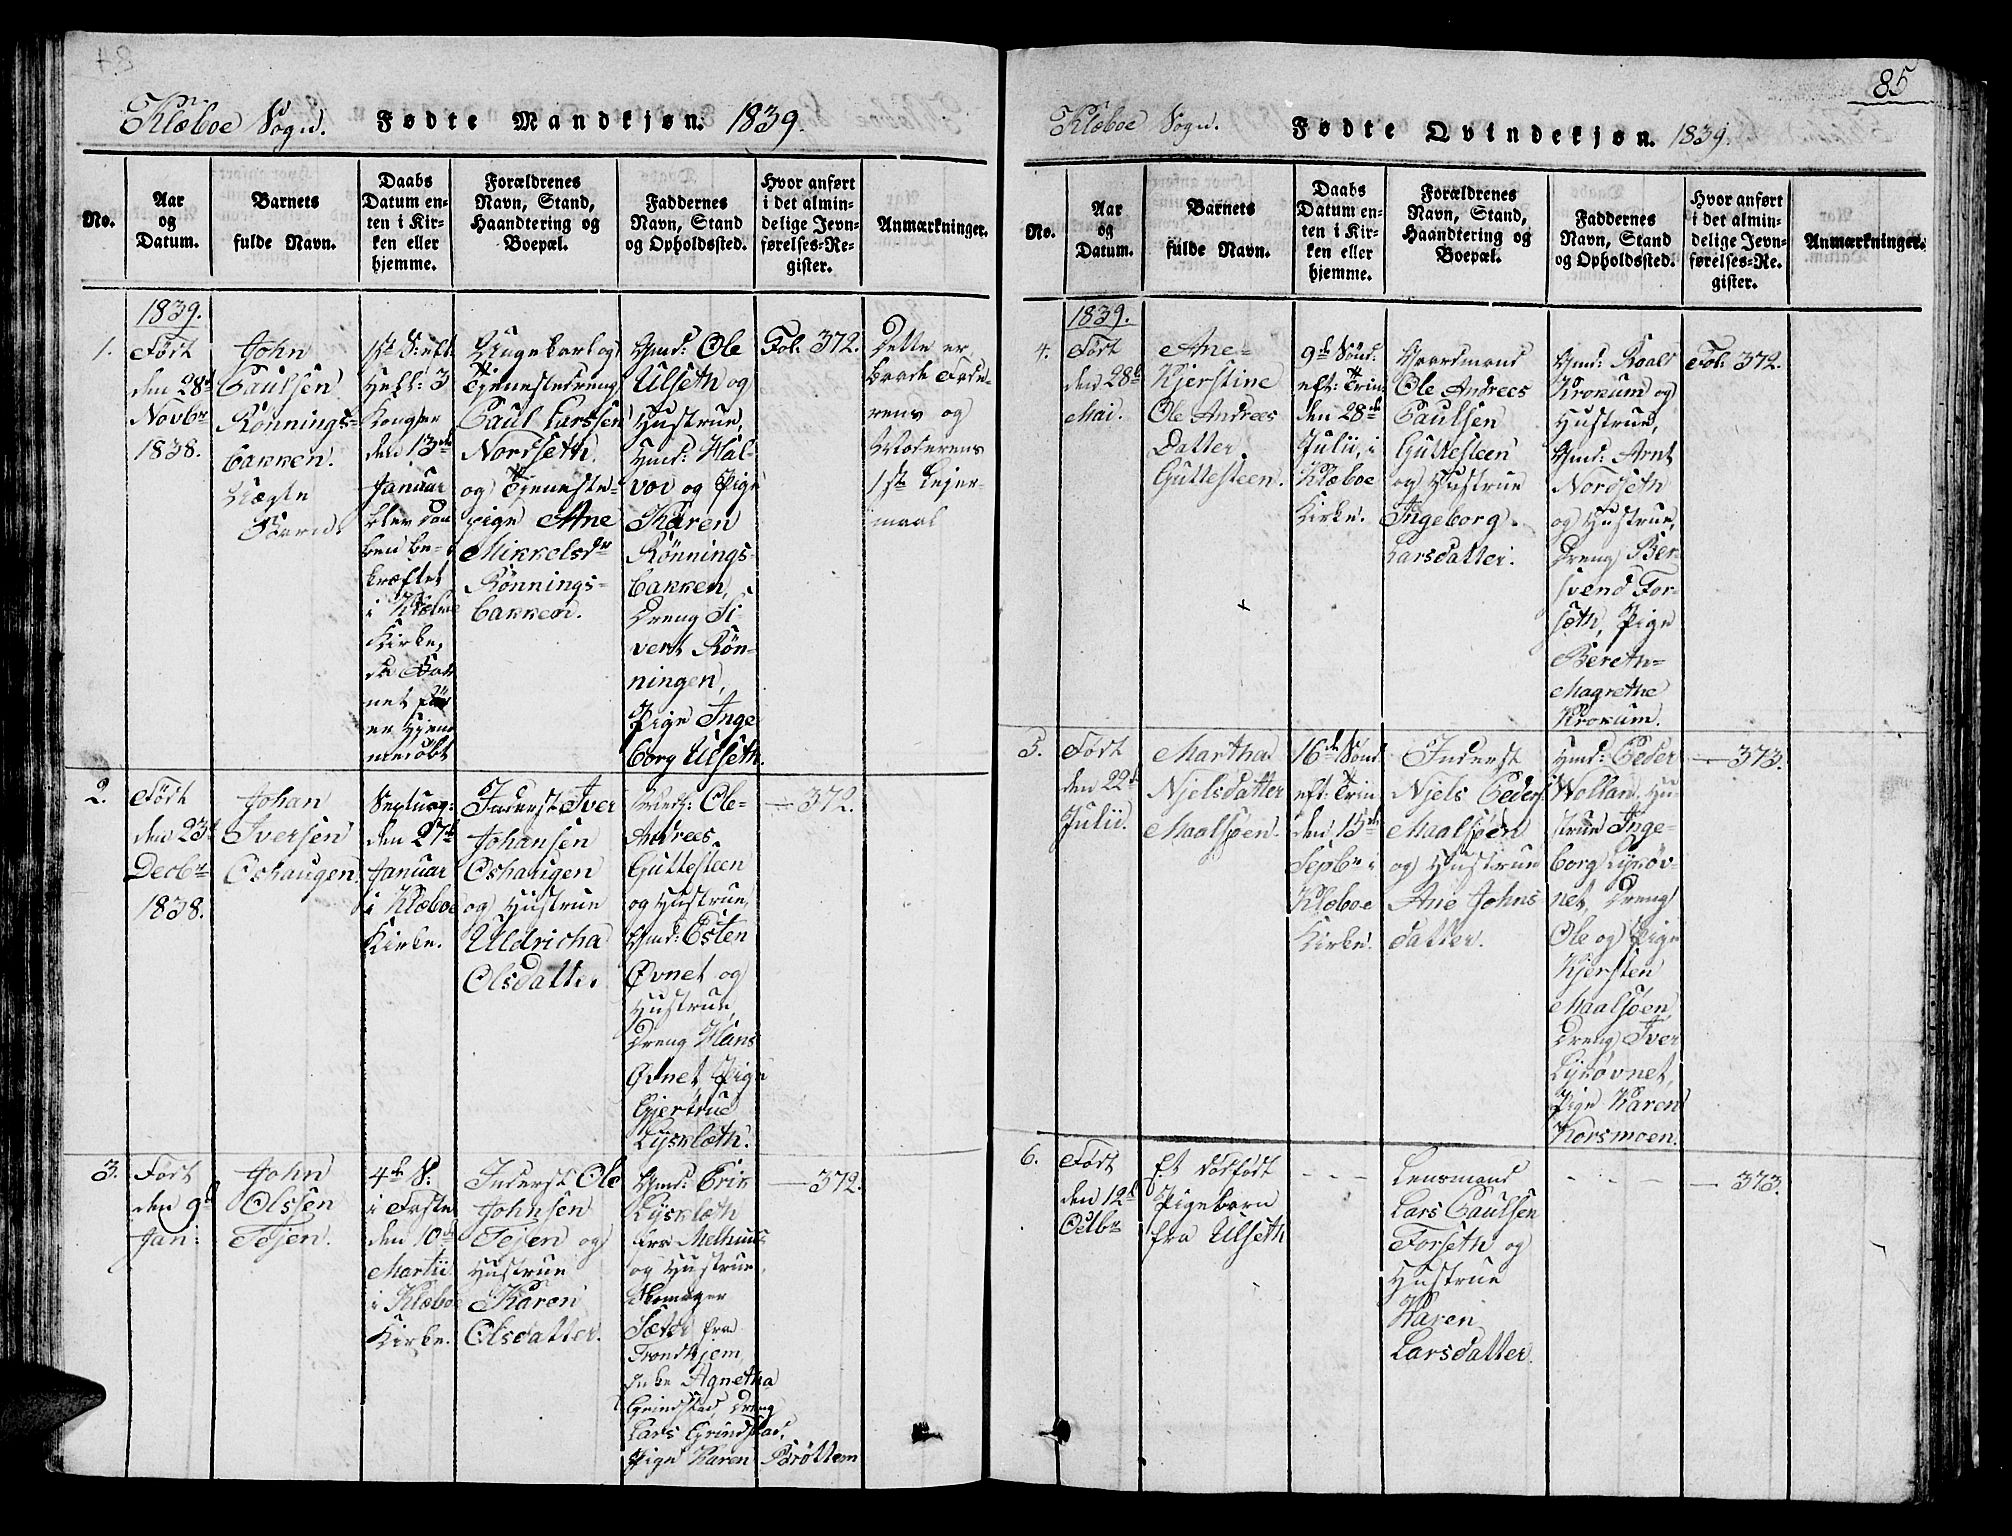 Klæboe Sogn. Fødte Mandkjøn. 1839.
No.
Aar
og
Datum.
Barnets
fulde Navn.
Daabs
Datum en-
ten i Kir-
ken eller
hjemme.
Forældrenes
Navn, Stand,
Haandtering og
Boepæl.
Faddernes
Navn, Stand
og Opholdssted.
Hvor anført
i det almin-
delige Jevn-
førelses-Re-
gister.
Anmærkninger.
1839.
1.
Født
den 28de
Novbr
1838.
John
Paulsen
Rønnings-
bakken.
Uægte
Barn.
1ste S: eft:
Hell: 3
Konger
den 13de
Januar
blev Daa
ben be-
kræftet
i Klæboe
Kirke,
da Bar
net
er hjem
medøbt
Ungekarl og
Tjenestedreng
Paul Larssen
Nordseth
og Tjeneste-
pige Ane
Mikkelsdr
Rønnings-
bakken.
Gmd: Ole
Ulseth og
Hustrue,
Gmd: Hal-
vor og Pige
Karen
Rønnings-
bakken,
Dreng Si-
vert Røn-
ningen,
Pige Inge
borg Ulseth.
Fol. 372.
Dette er
baade Fade-
rens og
Moderens
1ste Lejer-
maal
2.
Født
den 23de
Decbr
1838.
Johan
Iversen
Oshaugen.
Septuag:
den 27de
Januar
i Klæboe
Kirke.
Inderst Iver
Johansen
Oshaugen
og Hustrue
Uldricha
Olsdatter.
Ole-
Andreas
Guttesteen
og Hustrue,
Gmd: Esten
Øvnet og
Hustrue,
Dreng Hans
Øvnet, Pige
Gjertrue
Lyskleth.
— 372.
3.
Født
den 9de
Jan:
John
Olssen
Tejen.
4de S.
i Faste
den 10de
Martii
i Klæboe
Kirke.
Inderst Ole
Johnsen
Tejen og
Hustrue
Karen
Olsdatter.
Gmd: Erik
Lyskleth
fra Melhuus
og Hustrue,
Skomager
Sæter fra
Trondhjem,
Enke Agnetha
Grindstad, Dreng
Lars Grindstad,
Pige Karen Brøttem
— 372.
85
Klæboe Sogn. Fødte Qvindekjøn. 1839.
No.
Aar
og
Datum.
Barnets
fulde Navn.
Daabs
Datum en-
ten i Kir-
ken eller
hjemme.
Forældrenes
Navn, Stand,
Haandtering og
Boepæl.
Faddernes
Navn, Stand
og Opholdssted.
Hvor anført
i det almin-
delige Jevn-
førelses-Re-
gister.
Anmærkninger.
1839.
4.
Født
den 28de
Mai.
Ane-
Kjerstine
Ole Andreas
Datter
Guttesteen.
9de Sønd:
eft: Trin:
den 28de
Julii, i
Klæboe
Kirke.
Gaardmand
Ole Andreas
Paulsen
Guttesteen
og Hustrue
Ingeborg
Larsdatter.
Gmd: Roald
Krokum og
Hustrue,
Gmd: Arnt
Nordseth
og Hustrue,
Dreng Ber-
svend For-
seth, Pige
Bereth-
Magrethe
Krokum.
Fol. 372.
5.
Født
den 22de
Julii.
Martha
Njelsdatter
Maalsjøen.
16de Sønd
eft: Trin
den 15de
Septbr i
Klæboe
Kirke.
Inderst
Njels Peders
Maalsjøen
og Hustrue
Ane Johns
datter.
Gmd: Peder
Wollan, Hu-
strue Inge-
borg Lysøv-
net, Dreng
Ole og Pige
Kjersten
Maalsjøen,
Dreng Iver
Lysøvnet,
Pige Karen
Korsmoen.
— 373.
6.
Født
den 12te
Octbr
Et dødfødt
Pigebarn
fra Ulseth
- - -
Lensmand
Lars Paulsen
Forseth og
Hustrue
Karen
Larsdatter.
- - - -
— 373.